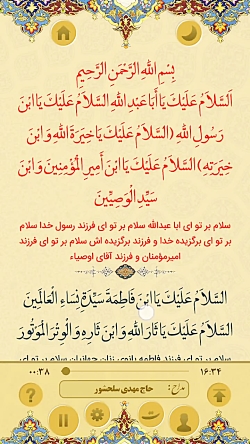 بِسْمِ اللهِ الرَّحْمَنِ الرَّحِيمِ
اَلسَّلاَمُ عَلَيْكَ يَا أَبَا عَبْدِ اللهِ السَّلاَمُ عَلَيْكَ يَا ابْنَ
رَسُولِ اللهِ (السَّلاَمُ عَلَيْكَ يَا خِيَرَةَ اللهِ وَ ابْنَ
خِيَرَتِهِ) السَّلاَمُ عَلَيْكَ يَا ابْنَ أَمِيرِ الْمُؤْمِنِينَ وَ ابْنَ
سَيِّدِ الْوَصِيِّينَ
سلام بر تو ای ابا عبدالله سلام بر تو ای فرزند رسول خدا سلام
بر تو ای برگزیده خدا و فرزند برگزیده اش سلام بر تو ای فرزند
امیرمؤمنان و فرزند آقای اوصیاء
السَّلاَمُ عَلَيْكَ يَا ابْنَ فَاطِمَةَ سَيِّدَةِ نِسَاءِ الْعَالَمِينَ
السَّلاَمُ عَلَيْكَ يَا ثَارَ اللهِ وَ ابْنَ ثَارِهِ وَ الْوِتْرَ الْمَوْتُورَ
سلام بر تو ای فرزند فاطمه بانوی زنان جهانیان سلام بر تو ای
۰۰:۳۸ ۱۶:۳۴
مداح: حاج مهدی سلحشور
ت